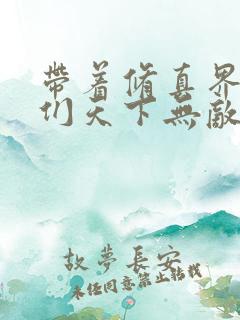 帶着脩真界
们天下無敵
故夢長安
未经同意禁止转载